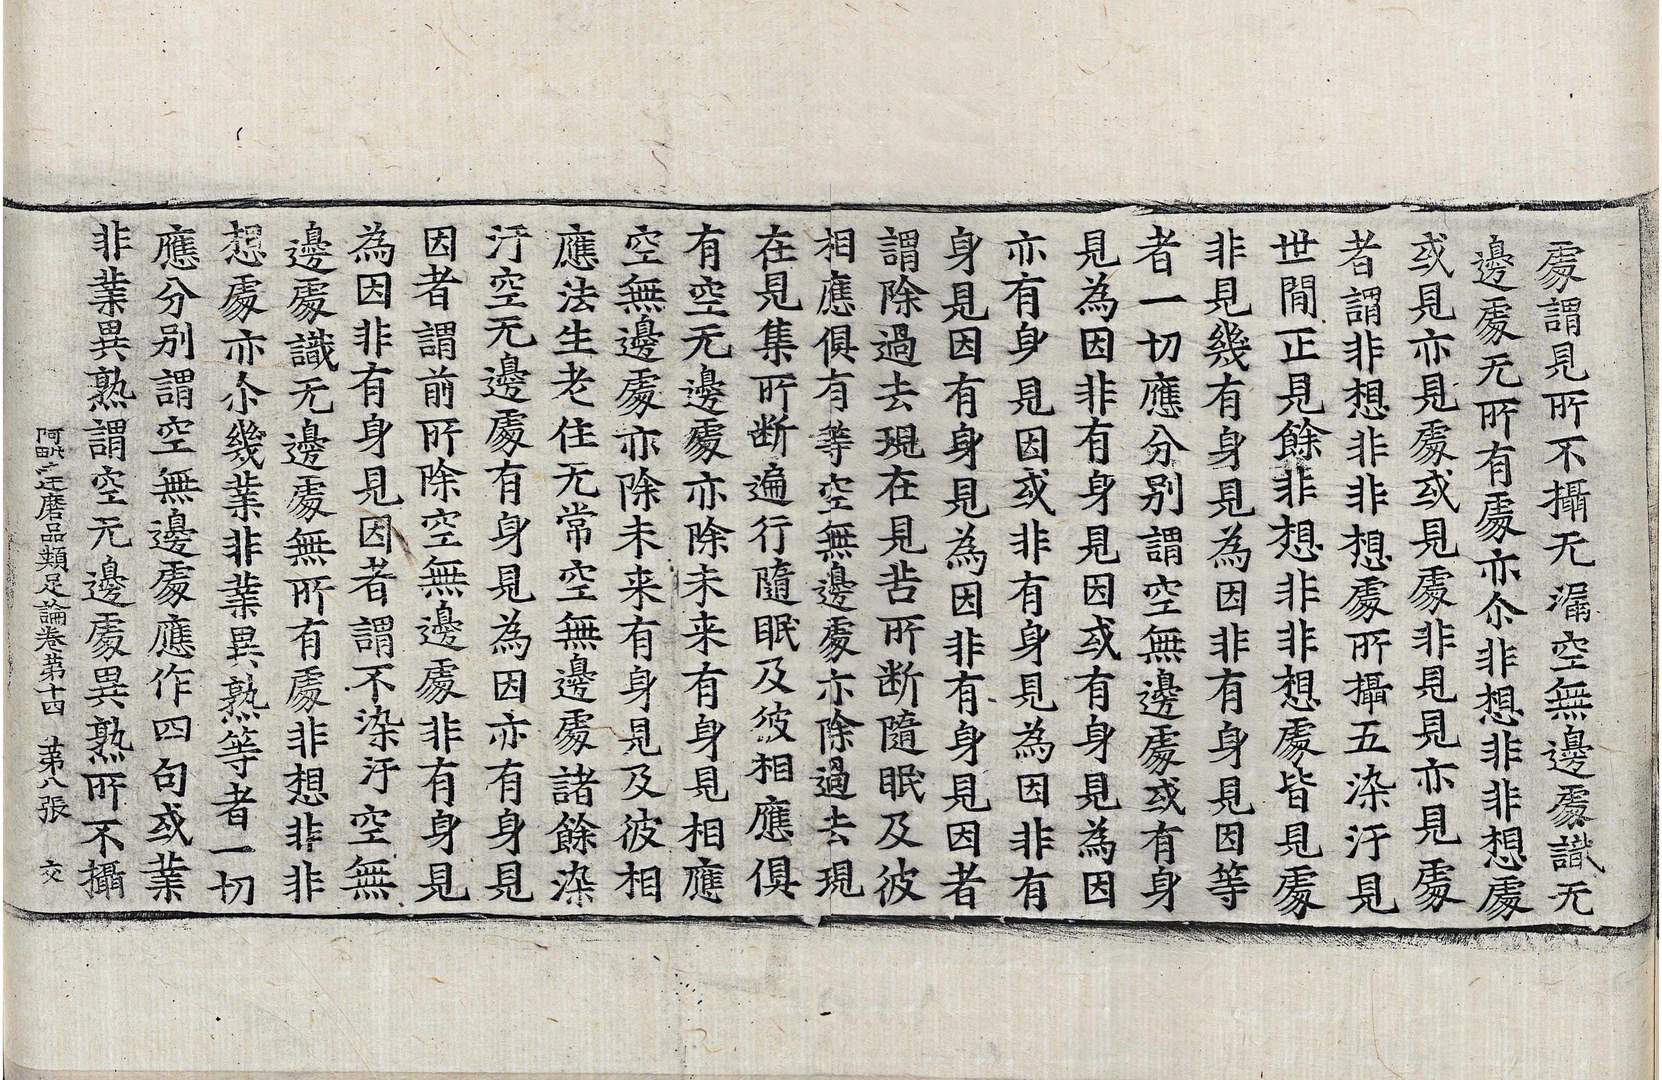 處謂見所不攝无漏空無邊處識无
邊處无所有處亦尒非想非非想處
或見亦見處或見處非見見亦見處
者謂非想非非想處所攝五染汙見
世間正見餘非想非非想處皆見處
非見幾有身見為因非有身見因等
者一切應分别謂空無邊處或有身
見為因非有身見因或有身見為因
亦有身見因或非有身見為因非有
身見因有身見為因非有身見因者
謂除過去現在見苦所断隨眠及彼
相應俱有等空無邊處亦除過去現
在見集所断遍行隨眠及彼相應俱
有空无邊處亦除未来有身見相應
空無邊處亦除未来有身見及彼相
應法生老住无常空無邊處諸餘染
汙空无邊處有身見為因亦有身見
因者謂前所除空無邊處非有身見
為因非有身見因者謂不染汙空無
邊處識无邊處無所有處非想非非
想處亦尒幾業非業異熟等者一切
應分别謂空無邊處應作四句或業
非業異熟謂空无邊處異熟所不攝
阿毗达磨品類足論卷苐十四 苐八張 交